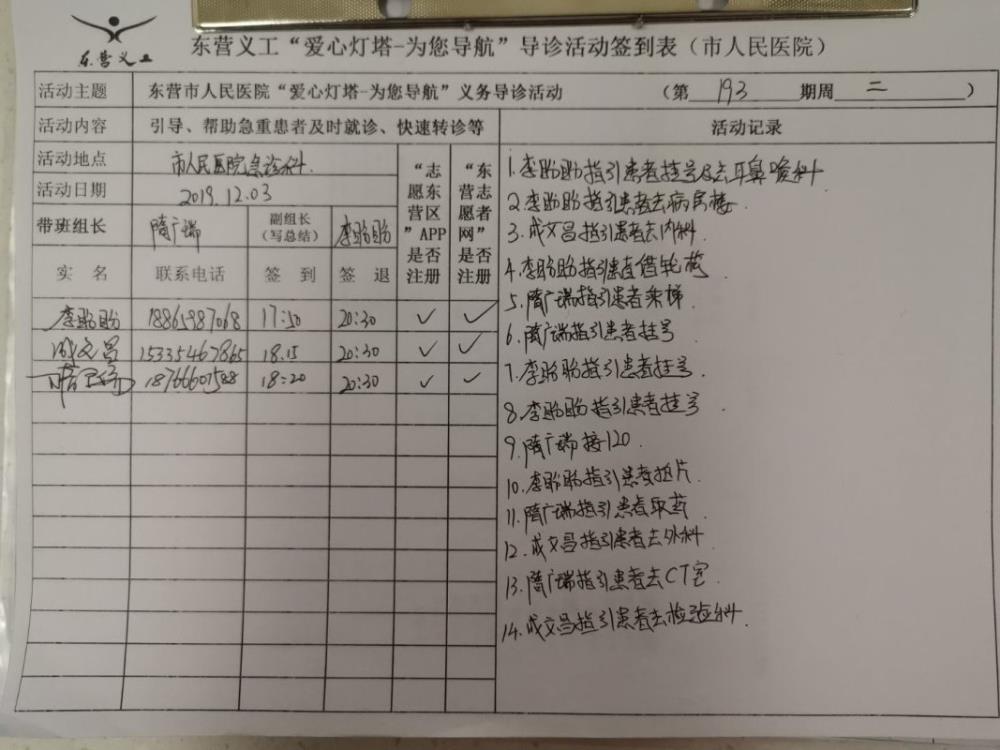 东营义工
东营义工“爱心灯塔-为您导航”导诊活动签到表（市人民医院）
活动主题 东营市人民医院“爱心灯塔-为您导航”义务导诊活动 （第 193 期周 二 ）
活动内容 引导、帮助急重患者及时就诊、快速转诊等 活动记录
活动地点 市人民医院急诊科.
活动日期 2019.12.03
带班组长 隋广瑞 副组长（写总结） 李盼盼
“志愿东营区”APP是否注册
“东营志愿者网”是否注册
实 名 联系电话 签 到 签 退
李盼盼 18865987068 17:50 20:30 ✓ ✓
成文昌 15335467865 18.15 20:30 ✓ ✓
18766607588 18:20 20:30 ✓ ✓
1.李盼盼指引患者挂号及去耳鼻喉科
2.李盼盼指引患者去病房楼.
3.成文昌指引患者去内科.
4.李盼盼指引患者借轮椅
5.隋广瑞指引患者乘梯.
6.隋广瑞指引患者挂号
7.李盼盼指引患者挂号.
8.李盼盼指引患者挂号
9.隋广瑞接120.
10.李盼盼指引患者拍片.
11.隋广瑞指引患者取药.
12.成文昌指引患者去外科.
13.隋广瑞指引患者去CT室.
14.成文昌指引患者去检验科.